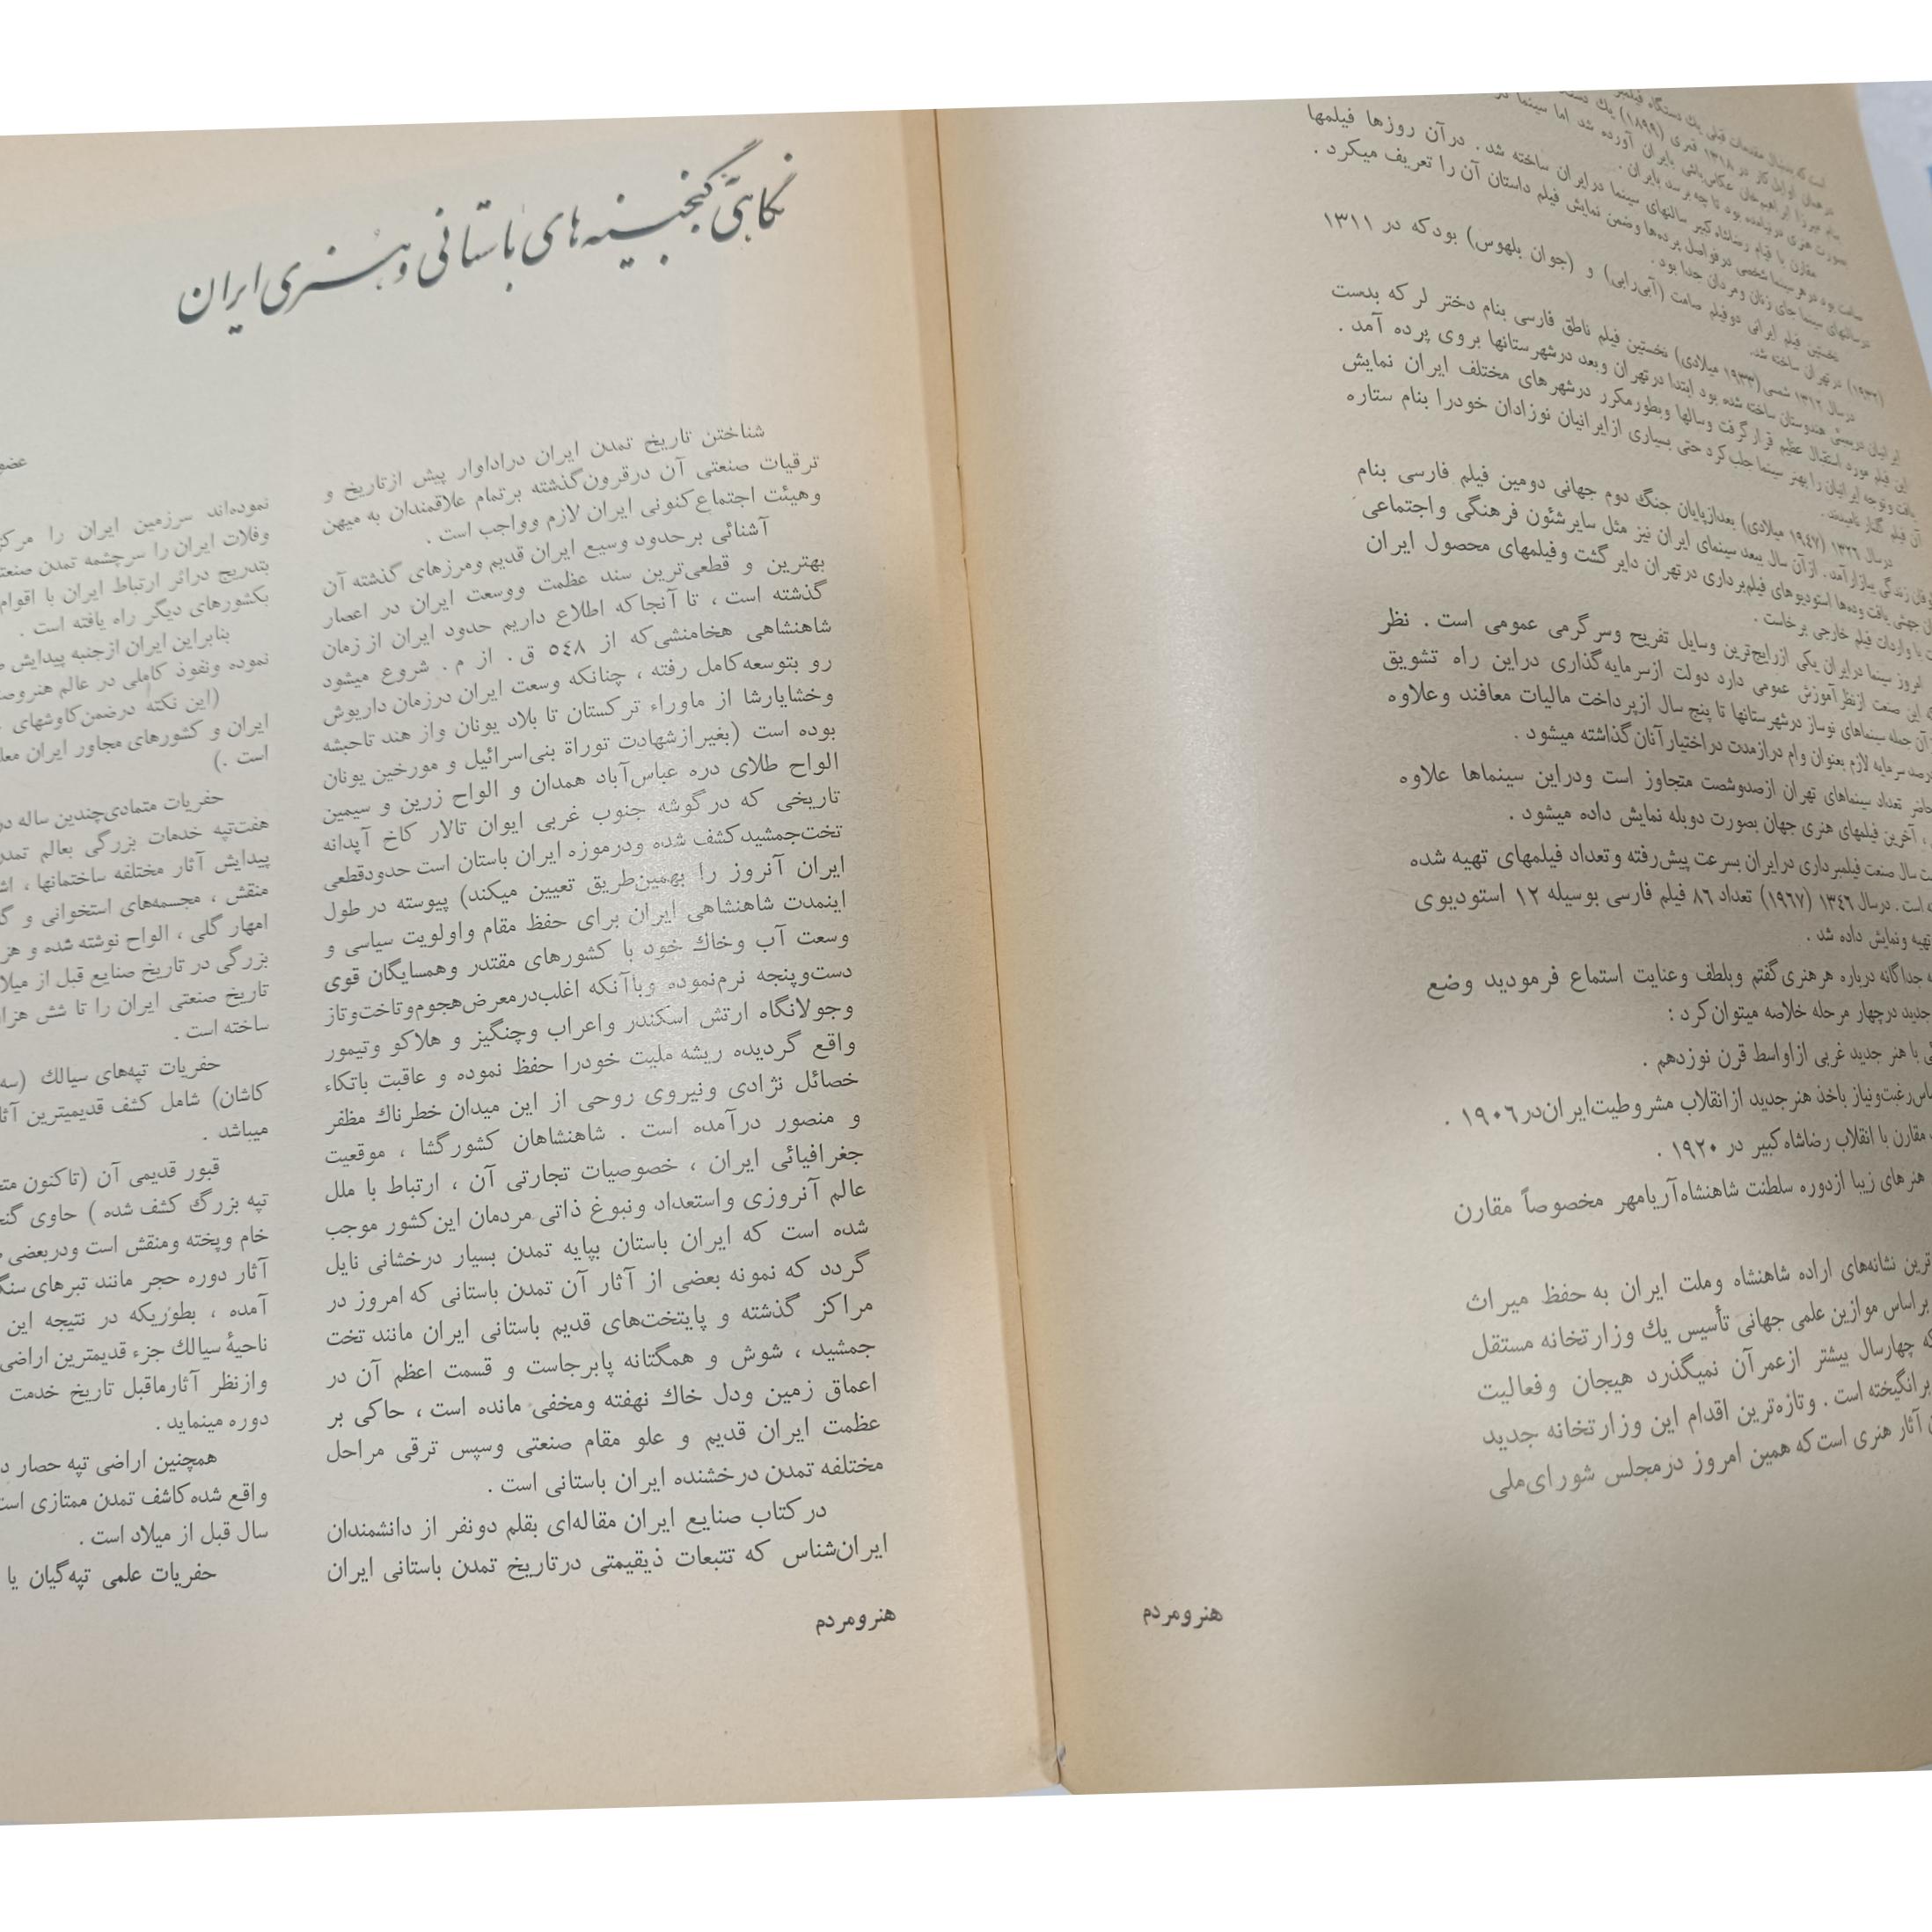 در همان اوایل کار در ۱۳۱۸ قمری (۱۸۹۹) یك
بنام میرزا ابراهیم‌خان عکاس‌باشی بایران آورده شد اما سینما
مقارن با قیام رضاشاه کبیر سالنهای سینما درایران ساخته شد . درآن روزها فیلمها
صامت بود درهر سینما شخصی درفواصل پرده‌ها وضمن نمایش فیلم داستان آن را تعریف میکرد .
درسالنهای سینما جای زنان ومردان جدا بود .
نخستین فیلم ایرانی دوفیلم صامت (آبی‌رابی) و (جوان بلهوس) بودکه در ۱۳۱۱
(۱۹۳۲) درتهران ساخته شد.
درسال ۱۳۱۲ شمسی (۱۹۳۳ میلادی) نخستین فیلم ناطق فارسی بنام دختر لر که بدست
ایرانیان دربمبئی هندوستان ساخته شده بود ابتدا درتهران وبعد درشهرستانها بروی پرده آمد .
این فیلم مورد استقبال عظیم قرارگرفت وسالها وبطورمکرر درشهرهای مختلف ایران نمایش
یافت وتوجه ایرانیان را بهنر سینما جلب‌کرد حتی بسیاری ازایرانیان نوزادان خودرا بنام ستاره
آن فیلم گلنار نامیدند .
درسال ۱۳۲۶ (۱۹٤۷ میلادی) بعدازپایان جنگ دوم جهانی دومین فیلم فارسی بنام
زندگی ببازارآمد . ازآن سال ببعد سینمای ایران نیز مثل سایرشئون فرهنگی واجتماعی
جهشی یافت وده‌ها استودیوهای فیلمبرداری درتهران دایر گشت وفیلمهای محصول ایران
با واردات فیلم خارجی برخاست .
امروز سینما درایران یکی ازرایج‌ترین وسایل تفریح وسرگرمی عمومی است . نظر
این صنعت ازنظرآموزش عمومی دارد دولت ازسرمایه‌گذاری دراین راه تشویق
آن جمله سینماهای نوساز درشهرستانها تا پنج سال ازپرداخت مالیات معافند وعلاوه
سرمایه لازم بعنوان وام درازمدت دراختیارآنان‌گذاشته میشود .
حاضر تعداد سینماهای تهران ازصدوشصت متجاوز است ودراین سینماها علاوه
، آخرین فیلمهای هنری جهان بصورت دوبله نمایش داده میشود .
سال صنعت فیلمبرداری درایران بسرعت پیش‌رفته وتعداد فیلمهای تهیه شده
است . درسال ۱۳٤٦ (۱۹٦۷) تعداد ۸٦ فیلم فارسی بوسیله ۱۲ استودیوی
تهیه ونمایش داده شد .
جداگانه درباره هرهنری‌گفتم وبلطف وعنایت استماع فرمودید وضع
جدید درچهار مرحله خلاصه میتوان‌کرد :
با هنر جدید غربی ازاواسط قرن نوزدهم .
رغبت‌ونیاز باخذ هنرجدید ازانقلاب مشروطیت‌ایران‌در ۱۹۰٦ .
مقارن با انقلاب رضاشاه کبیر در ۱۹۲۰ .
هنرهای زیبا ازدوره سلطنت شاهنشاه‌آریامهر مخصوصاً مقارن
ترین نشانه‌های اراده شاهنشاه وملت ایران به حفظ میراث
براساس موازین علمی جهانی تأسیس یك وزارتخانه مستقل
که چهارسال بیشتر ازعمرآن نمیگذرد هیجان وفعالیت
برانگیخته است . وتازه‌ترین اقدام این وزارتخانه جدید
آثار هنری است‌که همین امروز درمجلس شورای‌ملی
هنرومردم
نگاهی بگنجینه‌های باستانی و هنری ایران
شناختن تاریخ تمدن ایران دراداوار پیش ازتاریخ و
ترقیات صنعتی آن درقرون‌گذشته برتمام علاقمندان به میهن
وهیئت اجتماع‌کنونی ایران لازم وواجب است .
آشنائی برحدود وسیع ایران قدیم ومرزهای گذشته آن
بهترین و قطعی‌ترین سند عظمت ووسعت ایران در اعصار
گذشته است ، تا آنجاکه اطلاع داریم حدود ایران از زمان
شاهنشاهی هخامنشی‌که از ٥٤٨ ق . از م . شروع میشود
رو بتوسعه‌کامل رفته ، چنانکه وسعت ایران درزمان داریوش
وخشایارشا از ماوراء ترکستان تا بلاد یونان واز هند تاحبشه
بوده است (بغیرازشهادت توراة بنی‌اسرائیل و مورخین یونان
الواح طلای دره عباس‌آباد همدان و الواح زرین و سیمین
تاریخی که درگوشه جنوب غربی ایوان تالار کاخ آپدانه
تخت‌جمشیدکشف شده ودرموزه ایران باستان است حدودقطعی
ایران آنروز را بهمین‌طریق تعیین میکند) پیوسته در طول
اینمدت شاهنشاهی ایران برای حفظ مقام واولویت سیاسی و
وسعت آب وخاك خود با کشورهای مقتدر وهمسایگان قوی
دست‌وپنجه نرم‌نموده وباآنکه اغلب‌درمعرض‌هجوم‌وتاخت‌وتاز
وجولانگاه ارتش اسکندر واعراب وچنگیز و هلاکو وتیمور
واقع گردیده ریشه ملیت خودرا حفظ نموده و عاقبت باتکاء
خصائل نژادی ونیروی روحی از این میدان خطرناك مظفر
و منصور درآمده است . شاهنشاهان کشورگشا ، موقعیت
جغرافیائی ایران ، خصوصیات تجارتی آن ، ارتباط با ملل
عالم آنروزی واستعداد ونبوغ ذاتی مردمان این‌کشور موجب
شده است که ایران باستان بپایه تمدن بسیار درخشانی نایل
گردد که نمونه بعضی از آثار آن تمدن باستانی که امروز در
مراکز گذشته و پایتخت‌های قدیم باستانی ایران مانند تخت
جمشید ، شوش و همگتانه پابرجاست و قسمت اعظم آن در
اعماق زمین ودل خاك نهفته ومخفی مانده است ، حاکی بر
عظمت ایران قدیم و علو مقام صنعتی وسپس ترقی مراحل
مختلفه تمدن درخشنده ایران باستانی است .
درکتاب صنایع ایران مقاله‌ای بقلم دونفر از دانشمندان
ایران‌شناس که تتبعات ذیقیمتی درتاریخ تمدن باستانی ایران
عضو
نموده‌اند سرزمین ایران را
وفلات ایران را سرچشمه تمدن
بتدریج دراثر ارتباط ایران با اقوام
بکشورهای دیگر راه یافته است .
بنابراین ایران ازجنبه پیدایش
نموده ونفوذ کاملی در عالم
(این نکته درضمن‌کاوشهای
ایران و کشورهای مجاور ایران
است .)
حفریات متمادی‌چندین ساله
هفت‌تپه خدمات بزرگی بعالم
پیدایش آثار مختلفه ساختمانها ،
منقش ، مجسمه‌های استخوانی و
امهار گلی ، الواح نوشته شده و
بزرگی در تاریخ صنایع قبل از
تاریخ صنعتی ایران را تا شش
ساخته است .
حفریات تپه‌های سیالك
کاشان) شامل کشف قدیمیترین
میباشد .
قبور قدیمی آن (تاکنون
تپه بزرگ کشف شده ) حاوی
خام وپخته ومنقش است ودربعضی
آثار دوره حجر مانند تبرهای
آمده ، بطوریکه در نتیجه این
ناحیهٔ سیالك جزء قدیمترین اراضی
وازنظر آثارماقبل تاریخ خدمت
دوره مینماید .
همچنین اراضی تپه حصار
واقع شده‌کاشف تمدن ممتازی
سال قبل از میلاد است .
حفریات علمی تپه‌گیان یا
هنرومردم